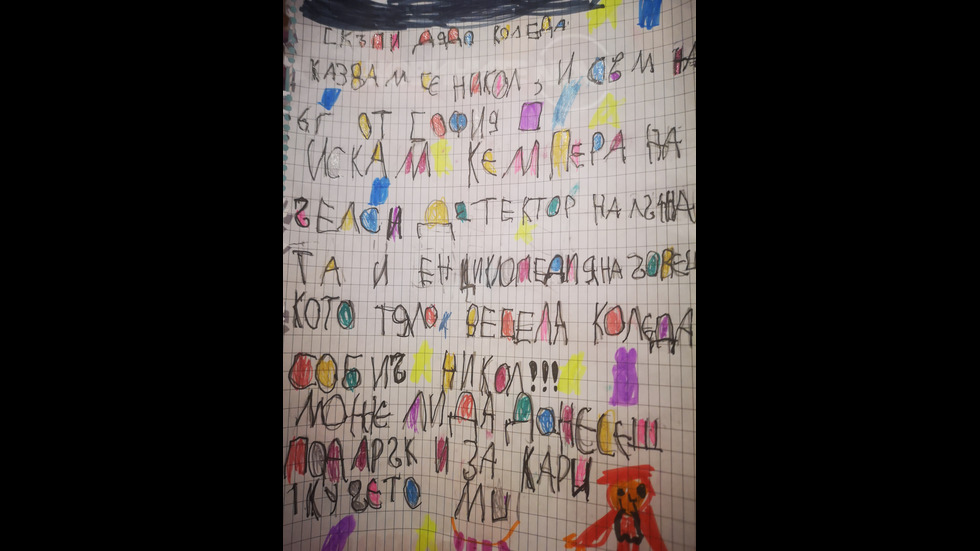 СКЪПИ ДЯДО КОЛЕДА
КАЗВАМ СЕ НИКОЛ, И СЪМ НА
6Г ОТ СОФИЯ
ИСКАМ КЕМПЕРА НА
ТЕКТОР НА ЛЪЖА
ТА И ЕНЦИКОПЕДИЯ НА ЧОВЕШ
КОТО ТЯЛО ВЕСЕЛА КОЛЕДА
НИКОЛ!!!
МОЖЕ ЛИ ДА ДОНЕСЕШ
ПОДАРЪК И ЗА
КУЧЕТО МИ